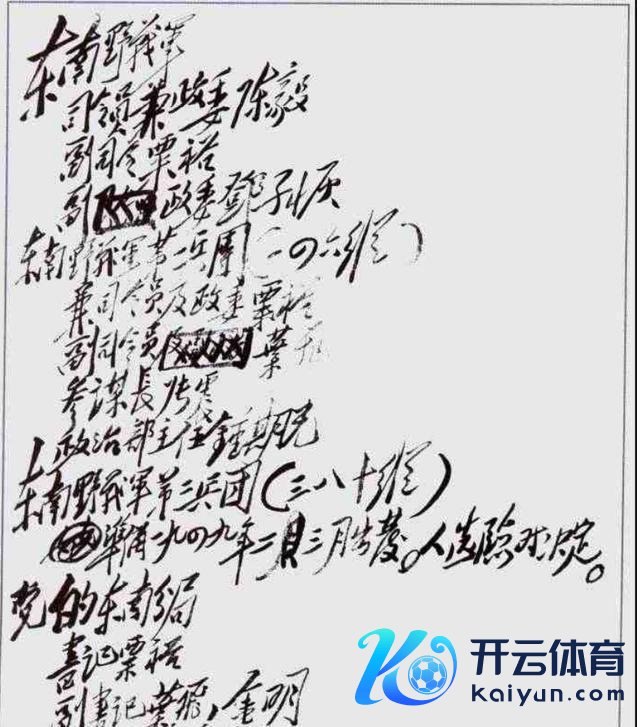 东南野战军
司令员兼政委陈毅
副司令粟裕
副政委邓子恢
东南野战军第一兵团(一四六纵)
兼司令员及政委粟裕
副司令员叶飞
参谋长张震
政治部主任钟期光
东南野战军第三兵团(三八十纵)
準备一九四九年二月三月出发。人选临时决定。
党的东南分局
書记粟裕
副書记葉飛,金明
开云体育
kaiyun.com